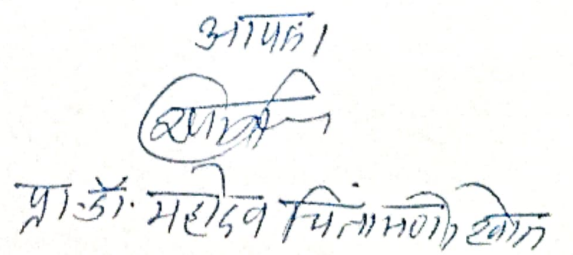 आपला
प्रा. डॉ. महादेव चिंतामणी खोत